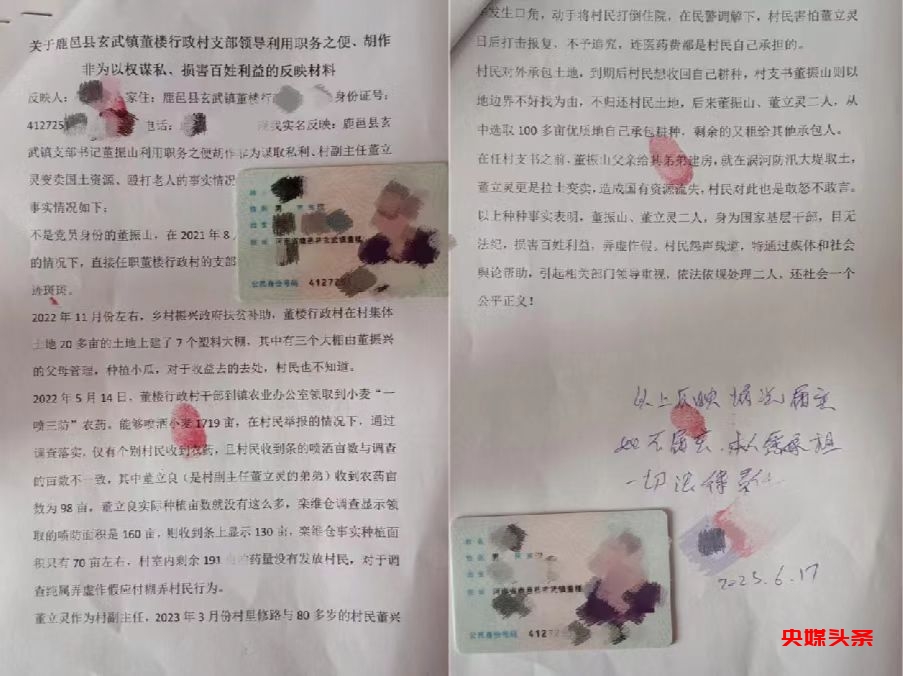 关于鹿邑县玄武镇董楼行政村支部领导利用职务之便、胡作
非为以权谋私、损害百姓利益的反映材料
反映人： 家住：鹿邑县玄武镇董楼行 身份证号：
412725 电话： 现我实名反映：鹿邑县玄
武镇支部书记董振山利用职务之便胡作非为谋取私利、村副主任董立
灵变卖国土资源、殴打老人的事实情况
事实情况如下：
不是党员身份的董振山，在 2021 年 8
的情况下，直接任职董楼行政村的支部
迹斑斑。
2022 年 11 月份左右，乡村振兴政府扶贫补助，董楼行政村在村集体
土地 20 多亩的土地上建了 7 个塑料大棚，其中有三个大棚由董振兴
的父母管理，种植小瓜，对于收益去的去处，村民也不知道。
2022 年 5 月 14 日，董楼行政村干部到镇农业办公室领取到小麦“一
喷三防”农药，能够喷洒小麦 1719 亩，在村民举报的情况下，通过
调查落实，仅有个别村民收到农药，且村民收到条的喷洒亩数与调查
的亩数不一致，其中董立良（是村副主任董立灵的弟弟）收到农药亩
数为 98 亩，董立良实际种植亩数就没有这么多，栾维仓调查显示领
取的喷防面积是 160 亩，则收到条上显示 130 亩，栾维仓事实种植面
积只有 70 亩左右，村室内剩余 191 药量没有发放村民，对于调
查纯属弄虚作假应付糊弄村民行为。
董立灵作为村副主任，2023 年 3 月份村里修路与 80 多岁的村民董兴
公民身份号码 41272
发生口角，动手将村民打倒住院，在民警调解下，村民害怕董立灵
日后打击报复，不予追究，连医药费都是村民自己承担的。
村民对外承包土地，到期后村民想收回自己耕种，村支书董振山则以
地边界不好找为由，不归还村民土地，后来董振山、董立灵二人，从
中选取 100 多亩优质地自己承包耕种，剩余的又租给其他承包人。
在任村支书之前，董振山父亲给其弟弟建房，就在涡河防汛大堤取土，
董立灵更是拉土变卖，造成国有资源流失，村民对此也是敢怒不敢言。
以上种种事实表明，董振山、董立灵二人，身为国家基层干部，目无
法纪，损害百姓利益，弄虚作假。村民怨声载道，特通过媒体和社会
舆论帮助，引起相关部门领导重视，依法依规处理二人，还社会一个
公平正义！
以上反映情况属实
如不属实，本人愿承担
一切法律责任
2025.6.17
公民身份号码 4127
央媒头条